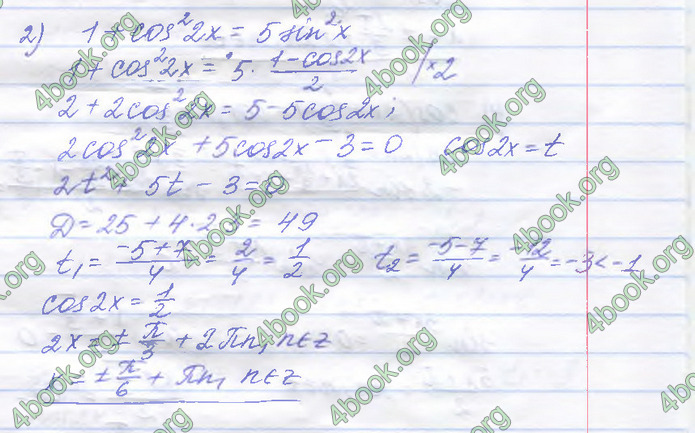 2) 1 + cos² 2x = 5 sin² x
1 + cos² 2x = 5 · (1 - cos2x)/2 | ×2
2 + 2cos² 2x = 5 - 5cos2x;
2cos² 2x + 5cos2x - 3 = 0 cos2x = t
2t² + 5t - 3 = 0
D = 25 + 4 · 2 · = 49
t₁ = (-5+7)/4 = 2/4 = 1/2 t₂ = (-5-7)/4 = -12/4 = -3 < -1
cos2x = 1/2
2x = ± π/3 + 2πn, n∈Z
x = ± π/6 + πn, n∈Z
4book.org